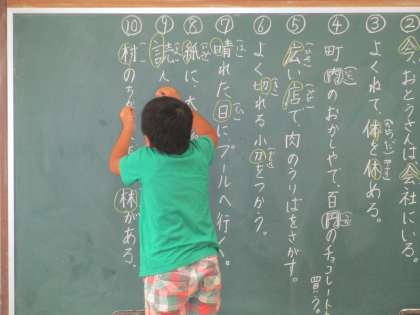 ②今、おとうさんは会社にいる。
③よくねて、体を休める。
④町内のおかしやで、百円のチョコレート
買う。
⑤広い店で肉のうりばをさがす。
⑥よく切れる小刀をつかう。
⑦晴れた日にプールへ行く。
⑧紙に、大
⑨読ん
⑩村のちか 林がある。